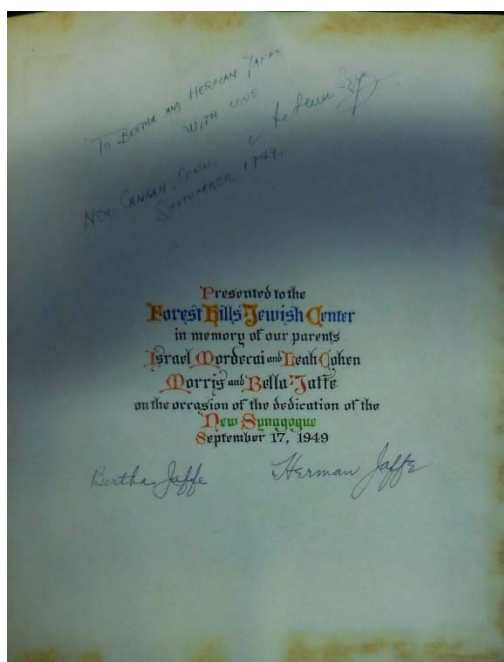 To Bertha and Herman Jaffe
With love
New Canaan, Conn.
September 1949.
Presented to the
Forest Hills Jewish Center
in memory of our parents
Israel Mordecai and Leah Cohen
Morris and Bella Jaffe
on the occasion of the dedication of the
New Synagogue
September 17, 1949
Bertha Jaffe
Herman Jaffe